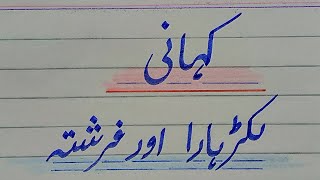 کہانی
لکڑہارا اور فرشتہ